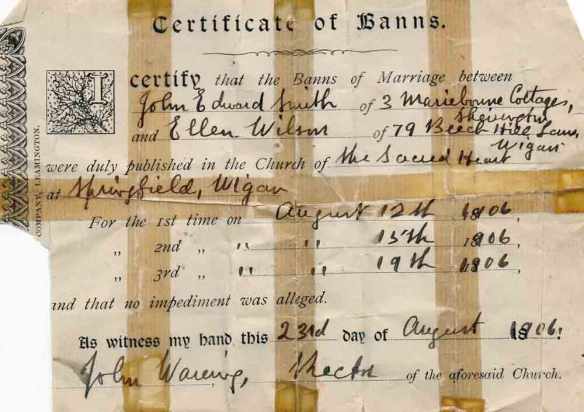 Certificate of Banns.
I certify that the Banns of Marriage between
John Edward Smith of 3 Mariebourne Cottages,
Shevington
and Ellen Wilson of 79 Beech Hill Lane,
Wigan
were duly published in the Church of the Sacred Heart
at Springfield, Wigan
For the 1st time on August 12th 1906,
„ 2nd „ „ „ 15th 1906,
„ 3rd „ „ „ 19th 1906,
and that no impediment was alleged.
As witness my hand this 23rd day of August 1906.
John Waring, Rector of the aforesaid Church.
COMPANY, LEAMINGTON.